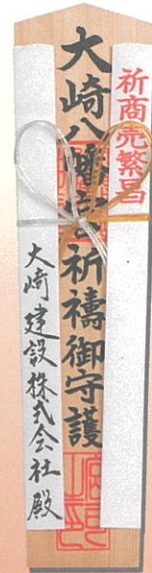 祈商売繁昌
大崎八幡宮祈禱御守護
大崎建設株式会社殿